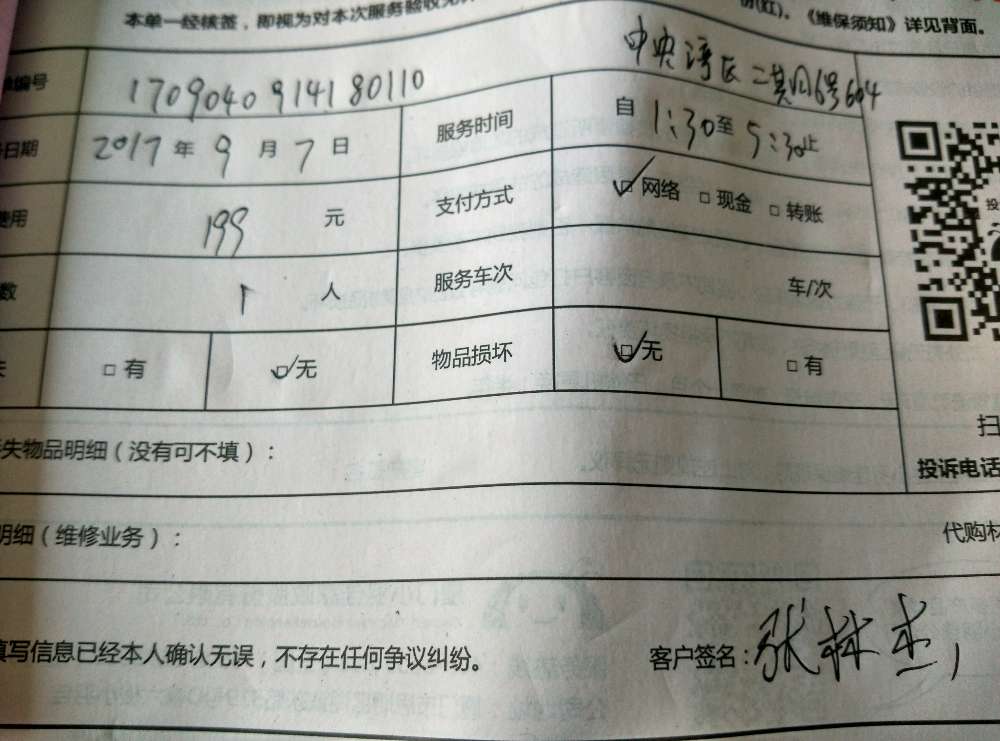 本单一经核签，即视为对本次服务验收
份(红)。《维保须知》详见背面。
中央湾区二 6号604
编号 170904091418０110
日期 2017年9月7日 服务时间 自1:30至5:30止
费用 199元 支付方式 ☑网络 □现金 □转账
数 1人 服务车次 车/次
失 □有 ☑无 物品损坏 ☑无 □有
失物品明细（没有可不填）：
扫
投诉电话
明细（维修业务）：
代购材
填写信息已经本人确认无误，不存在任何争议纠纷。 客户签名：张林杰